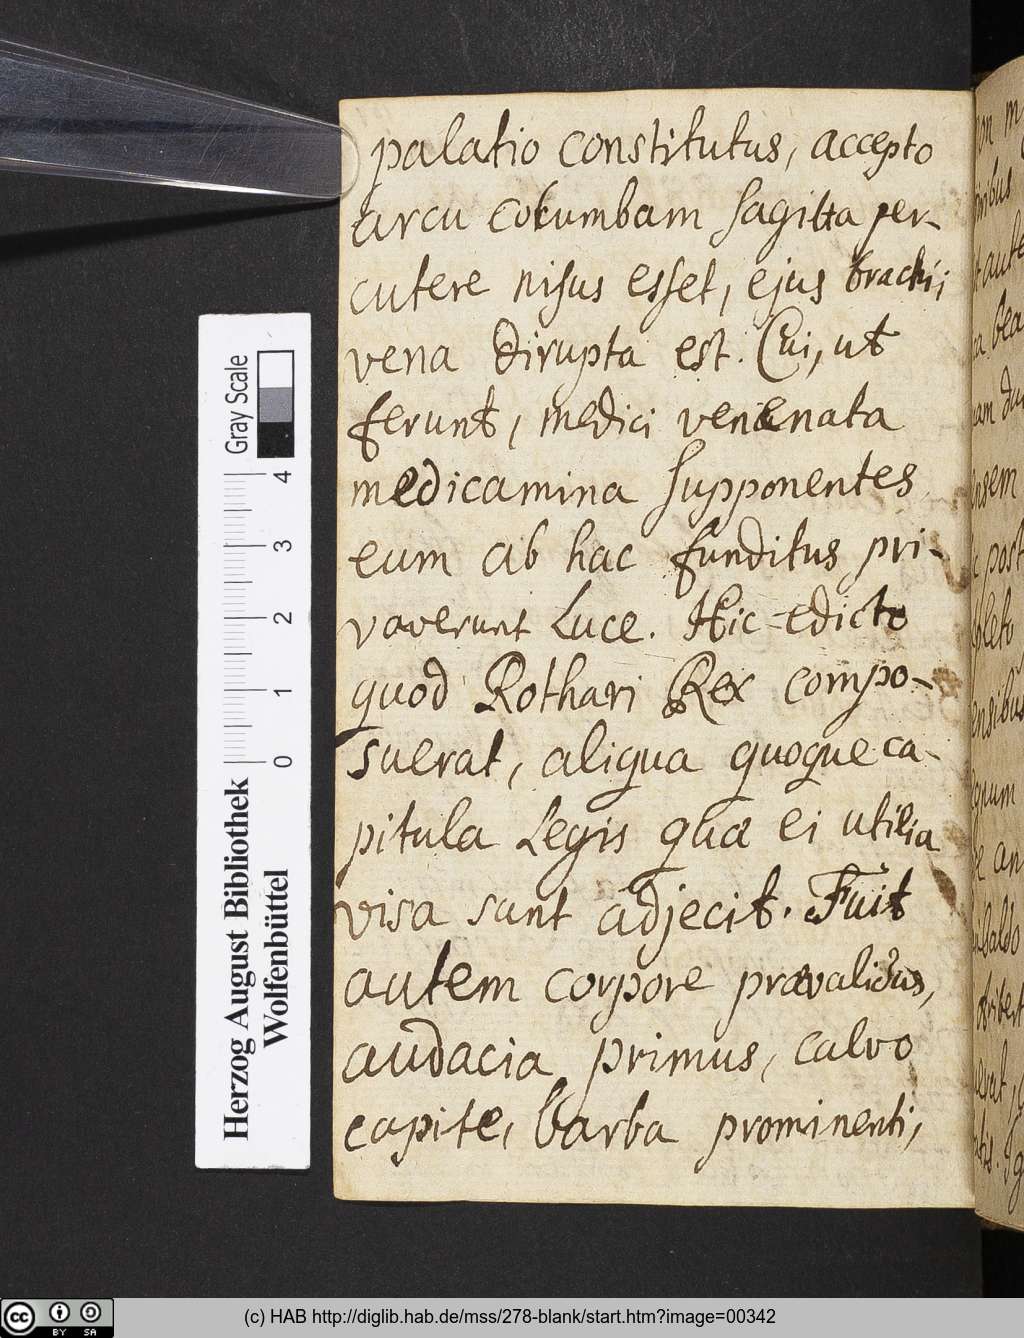 palatio constitutus, accepto
arcu columbam sagitta per-
cutere nisus esset, ejus brachii
vena dirupta est. Cui, ut
ferunt, medici venenata
medicamina supponentes
eum ab hac funditus pri-
vaverunt Luce. Hic edicto
quod Rothari Rex compo-
suerat, aliqua quoque ca-
pitula Legis quæ ei utilia
visa sunt adjecit. Fuit
autem corpore prævalidus,
audacia primus, calvo
capite, barba prominenti,
Herzog August Bibliothek
Wolfenbüttel
Gray Scale
0 1 2 3 4
cc BY SA
(c) HAB http://diglib.hab.de/mss/278-blank/start.htm?image=00342